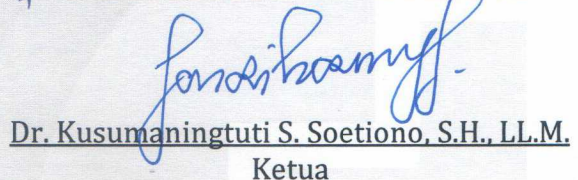 Dr. Kusumaningtuti S. Soetiono, S.H., LL.M.
Ketua